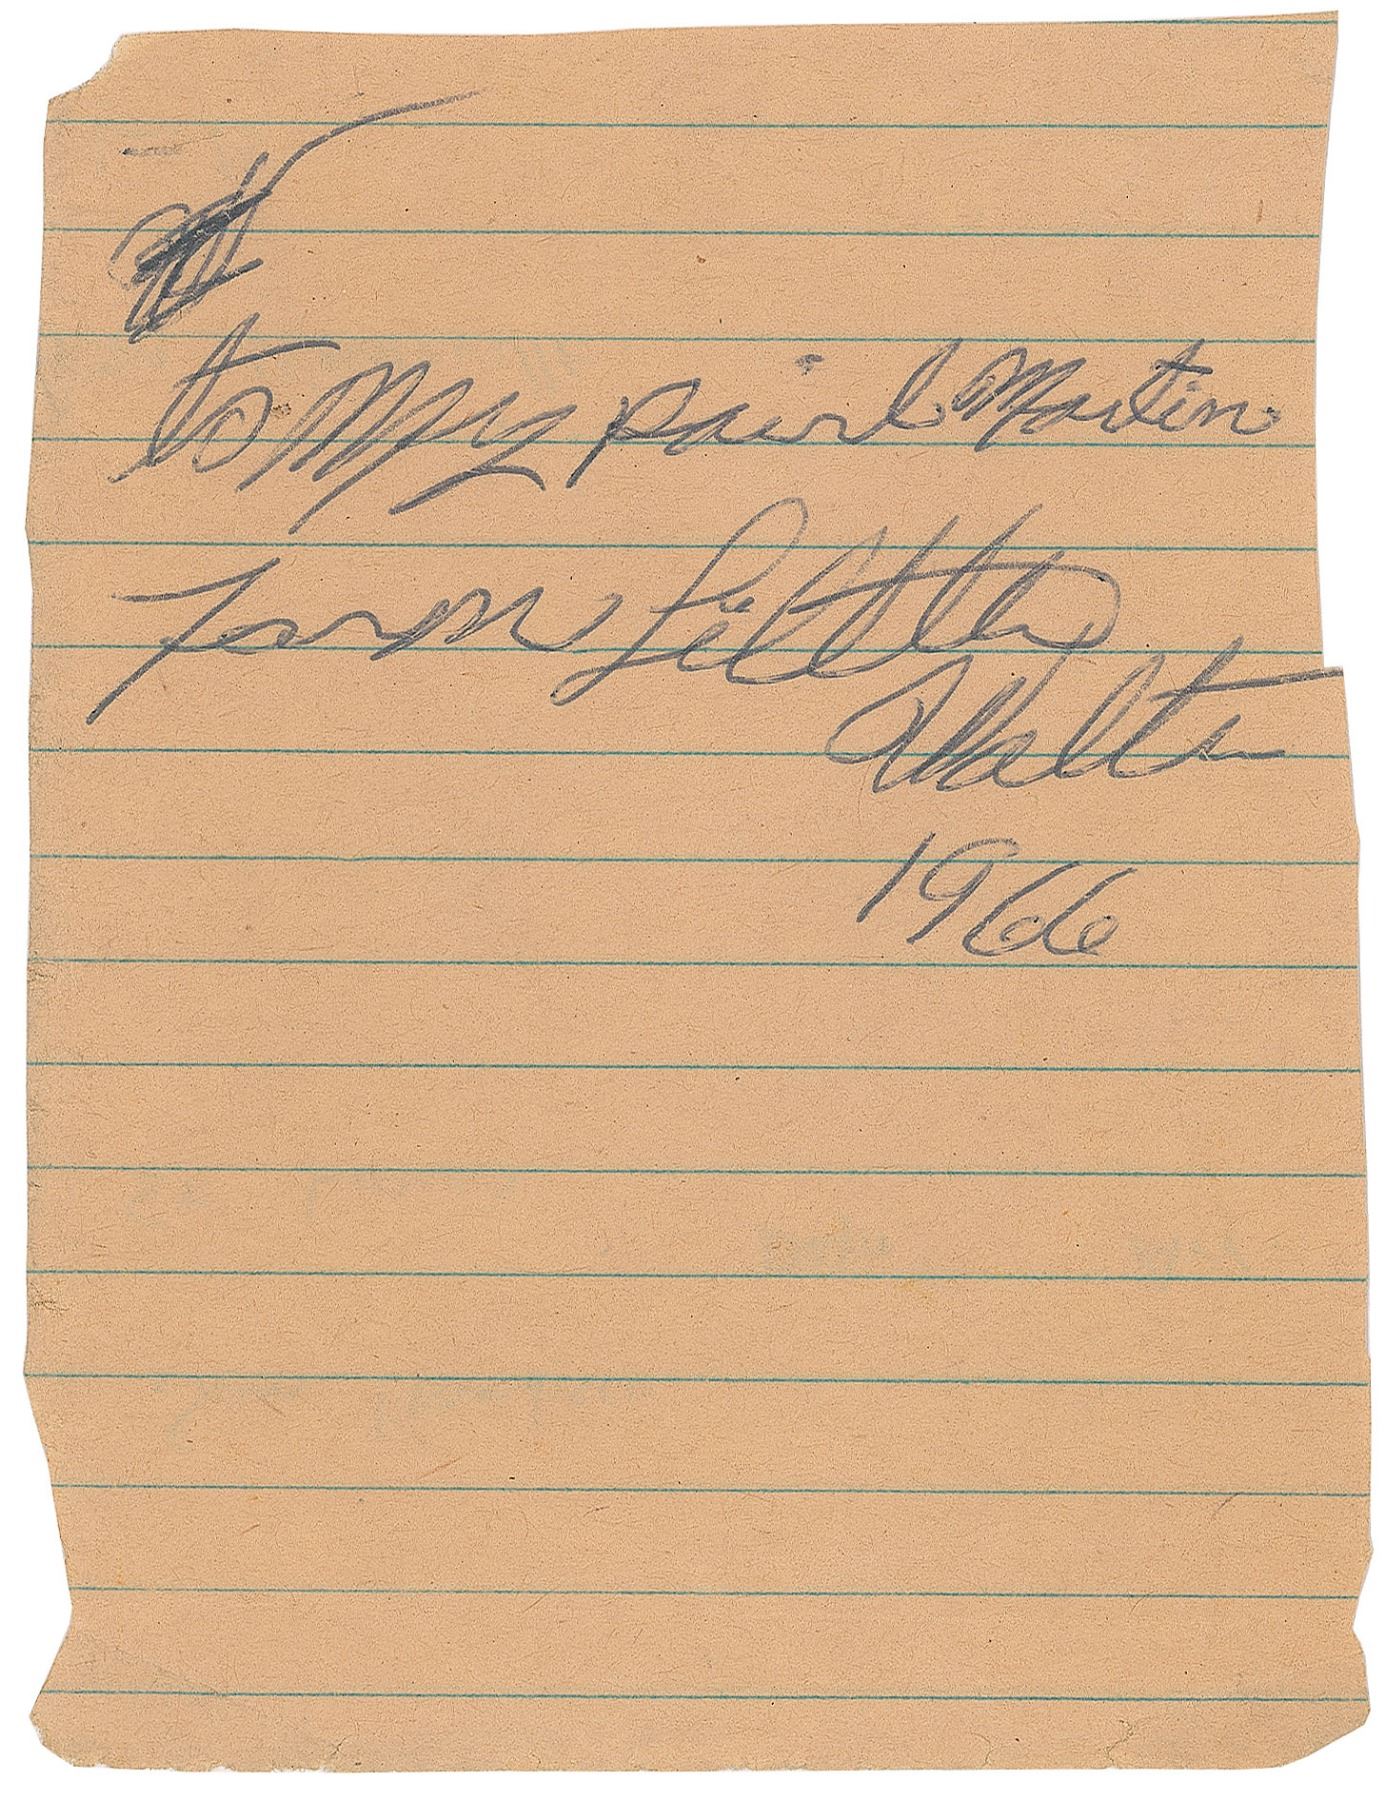 to My pairl Martin
form Little
Walter
1966